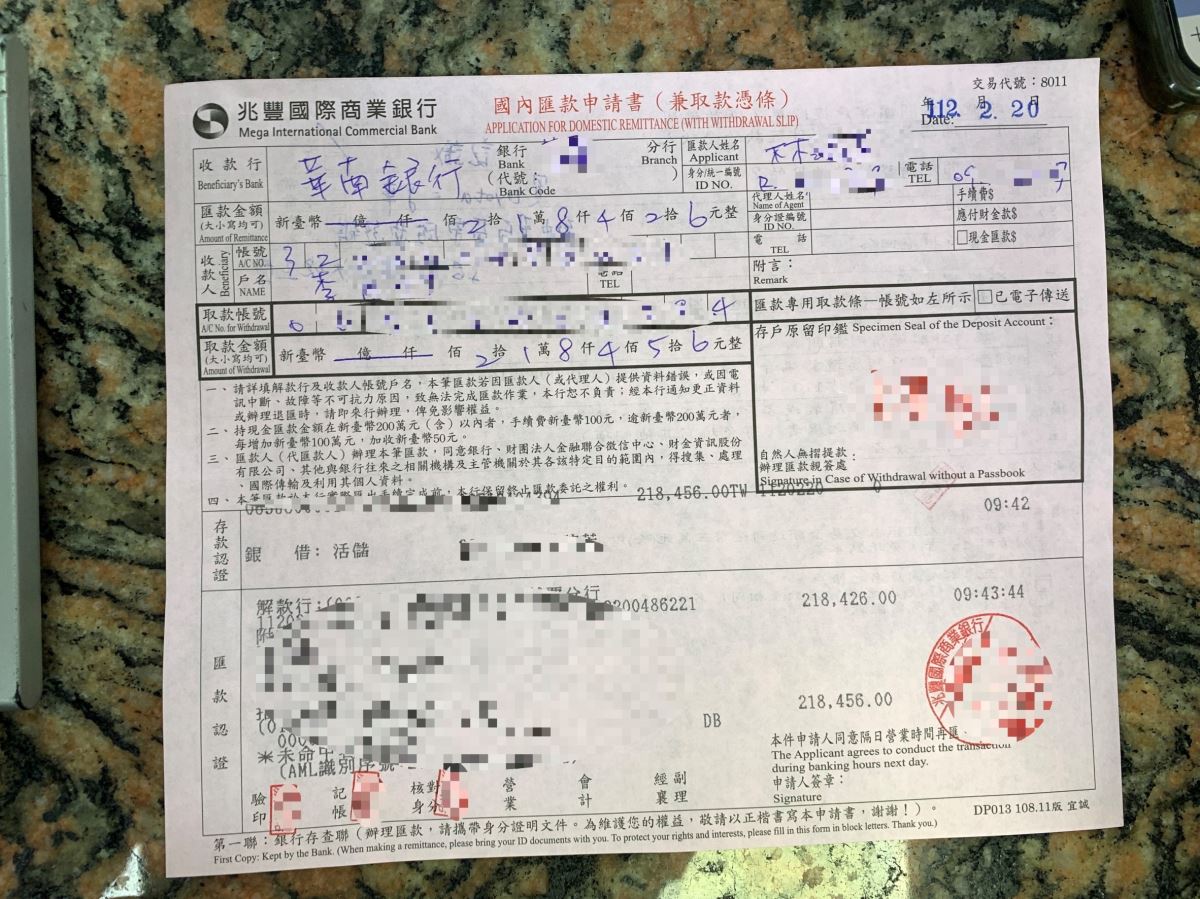 交易代號：8011
兆豐國際商業銀行
國內匯款申請書（兼取款憑條）
年 月 日
112. 2. 20
Mega International Commercial Bank
APPLICATION FOR DOMESTIC REMITTANCE (WITH WITHDRAWAL SLIP)
Date:
收款行
Beneficiary's Bank
華南銀行
銀行
Bank
（代號：
Bank Code
）
分行
Branch
匯款人姓名
Applicant
林
身分/統一編號
ID NO.
電話
TEL
匯款金額
(大小寫均可)
Amount of Remittance
新臺幣 億 仟 佰 2 拾 1 萬 8 仟 4 佰 2 拾 6 元整
代理人姓名
Name of Agent
手續費$
身分證編號
ID NO.
應付財金款$
電 話
TEL
現金匯款$
收款人
Beneficiary
帳號
A/C NO.
3 2
戶名
NAME
李
TEL
附言：
Remark
取款帳號
A/C No. for Withdrawal
0
4
匯款專用取款條—帳號如左所示
已電子傳送
取款金額
(大小寫均可)
Amount of Withdrawal
新臺幣 億 仟 佰 2 拾 1 萬 8 仟 4 佰 5 拾 6 元整
存戶原留印鑑 Specimen Seal of the Deposit Account：
一、請詳填解款行及收款人帳號戶名，本筆匯款若因匯款人（或代理人）提供資料錯誤，或因電
訊中斷、故障等不可抗力原因，致無法完成匯款作業，本行恕不負責；經本行通知更正資料
或辦理退匯時，請即來行辦理，俾免影響權益。
二、持現金匯款金額在新臺幣200萬元（含）以內者，手續費新臺幣100元，逾新臺幣200萬元者，
每增加新臺幣100萬元，加收新臺幣50元。
三、匯款人（代匯款人）辦理本筆匯款，同意銀行、財團法人金融聯合徵信中心、財金資訊股份
有限公司、其他與銀行往來之相關機構及主管機關於其各該特定目的範圍內，得搜集、處理
、國際傳輸及利用其個人資料。
四、本筆匯款於本行實際匯出手續完成前，本行保留終止匯款委託之權利。
自然人無摺提款：
辦理匯款親簽處
Signature in Case of Withdrawal without a Passbook
218,456.00TW 1120220
09:42
存款認證
銀 借：活儲
匯款認證
解款行:
分行
200486221
218,426.00
09:43:44
兆豐國際商業銀行
DB
218,456.00
(AML識別序號
本件申請人同意隔日營業時間再匯
The Applicant agrees to conduct the transaction
during banking hours next day.
申請人簽章：
Signature
驗印
記帳
核對身分
營業
會計
經副襄理
第一聯：銀行存查聯（辦理匯款，請攜帶身分證明文件。為維護您的權益，敬請以正楷書寫本申請書，謝謝！）。
DP013 108.11版 宜誠
First Copy: Kept by the Bank. (When making a remittance, please bring your ID documents with you. To protect your rights and interests, please fill in this form in block letters. Thank you.)